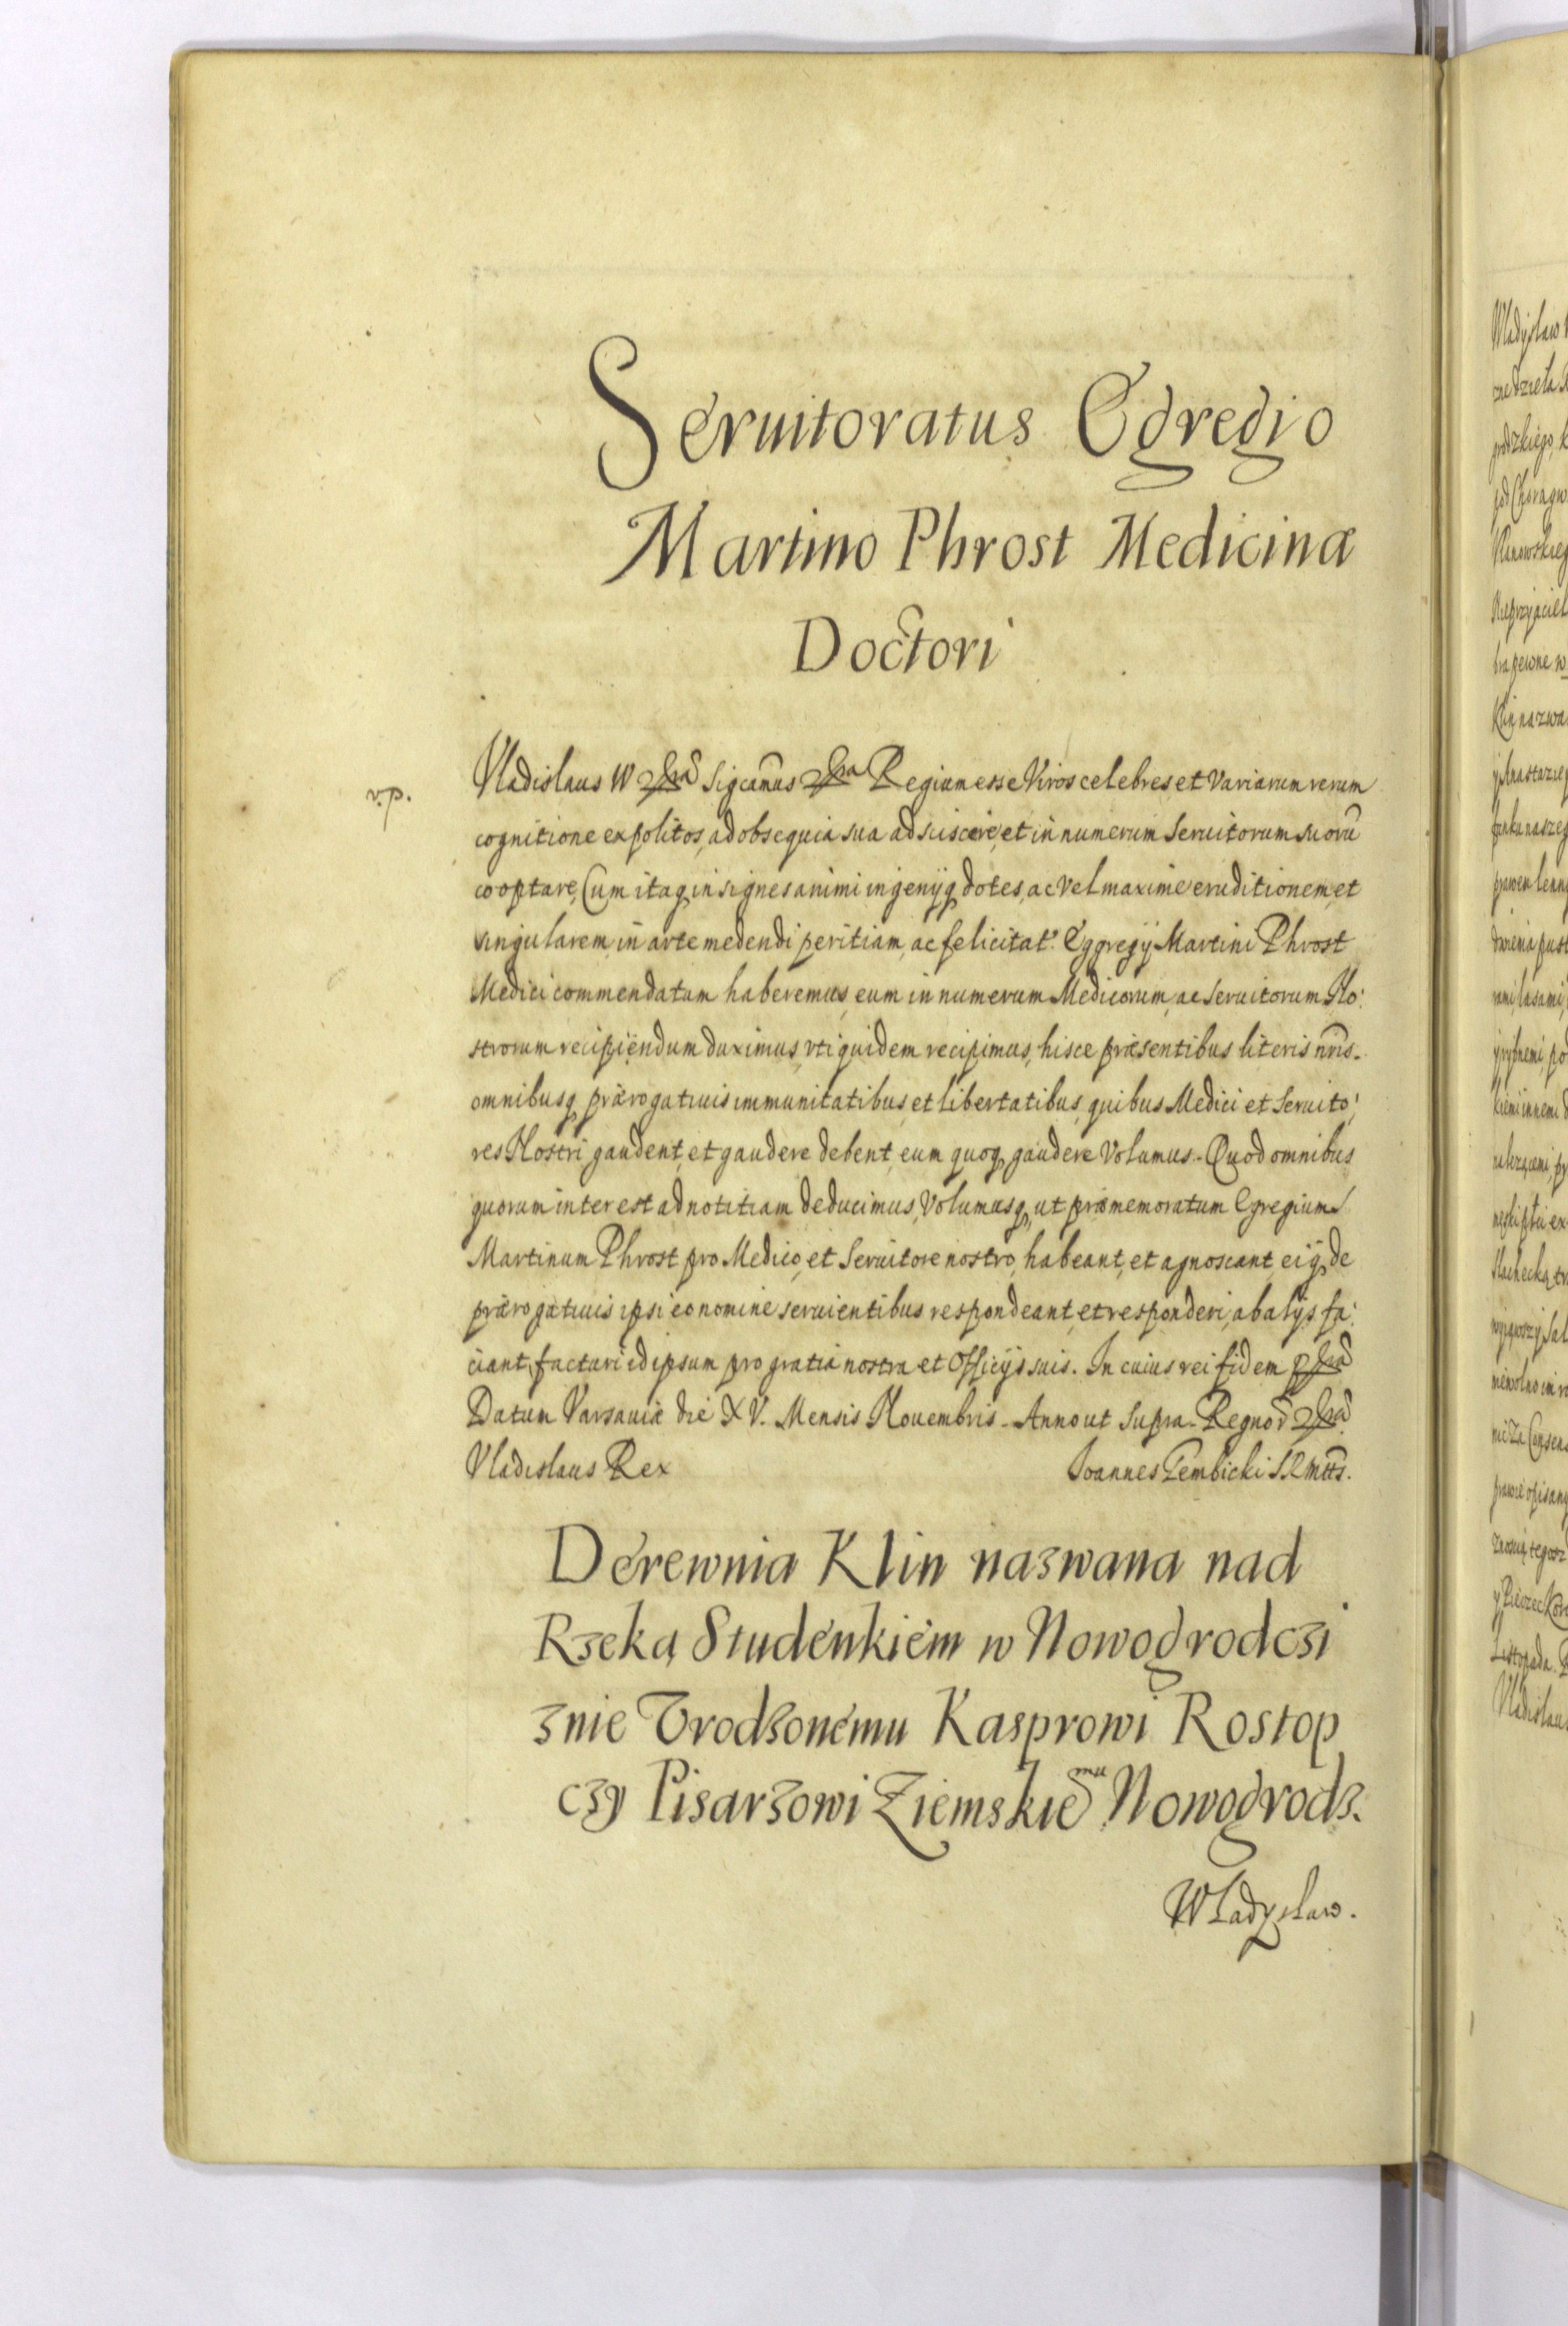 Seruitoratus Egregio
Martino Phrost Medicinæ
Doctori
v.p.
Vladislaus IV Sigcamus Regium esse Viros celebres, et variarum rerum
cognitione expolitos, ad obsequia sua adsciscere, et in numerum Seruitorum suorū
cooptare, Cum itaq insignes animi ingenijq dotes, ac vel maxime eruditionem, et
singularem, in arte medendi peritiam, ac felicitat. Egregij Martini Phrost
Medici commendatam haberemus, eum in numerum Medicorum, ac Seruitorum No:
strorum recipiendum duximus, vti quidem recipimus, hisce præsentibus literis nr̄is.
omnibusq prærogatiuis immunitatibus, et libertatibus, quibus Medici et Seruito:
res Nostri gaudent, et gaudere debent, eum quoq gaudere Volumus. Quod omnibus
quorum interest ad notitiam deducimus, Volumusq, ut præmemoratum Egregium
Martinum Phrost pro Medico, et Seruitore nostro, habeant, et agnoscant, eiq, de
prærogatiuis ipsi eo nomine seruientibus respondeant, et responderi, ab alijs fa:
ciant, facturi id ipsum pro gratia nostra et Officijs suis. In cuius rei fidem
Datum Varsauiæ die XV. Mensis Nouembris. Anno ut supra. Regnor
Vladislaus Rex Joannes Gembicki S.R.mtts.
Derewnia Klin nazwana nad
Rzeką Studenkiem w Nowogrodczi
znie Vrodzonemu Kasprowi Rostop
czy Pisarzowi Ziemskiemu Nowogrodz.
Władysław.